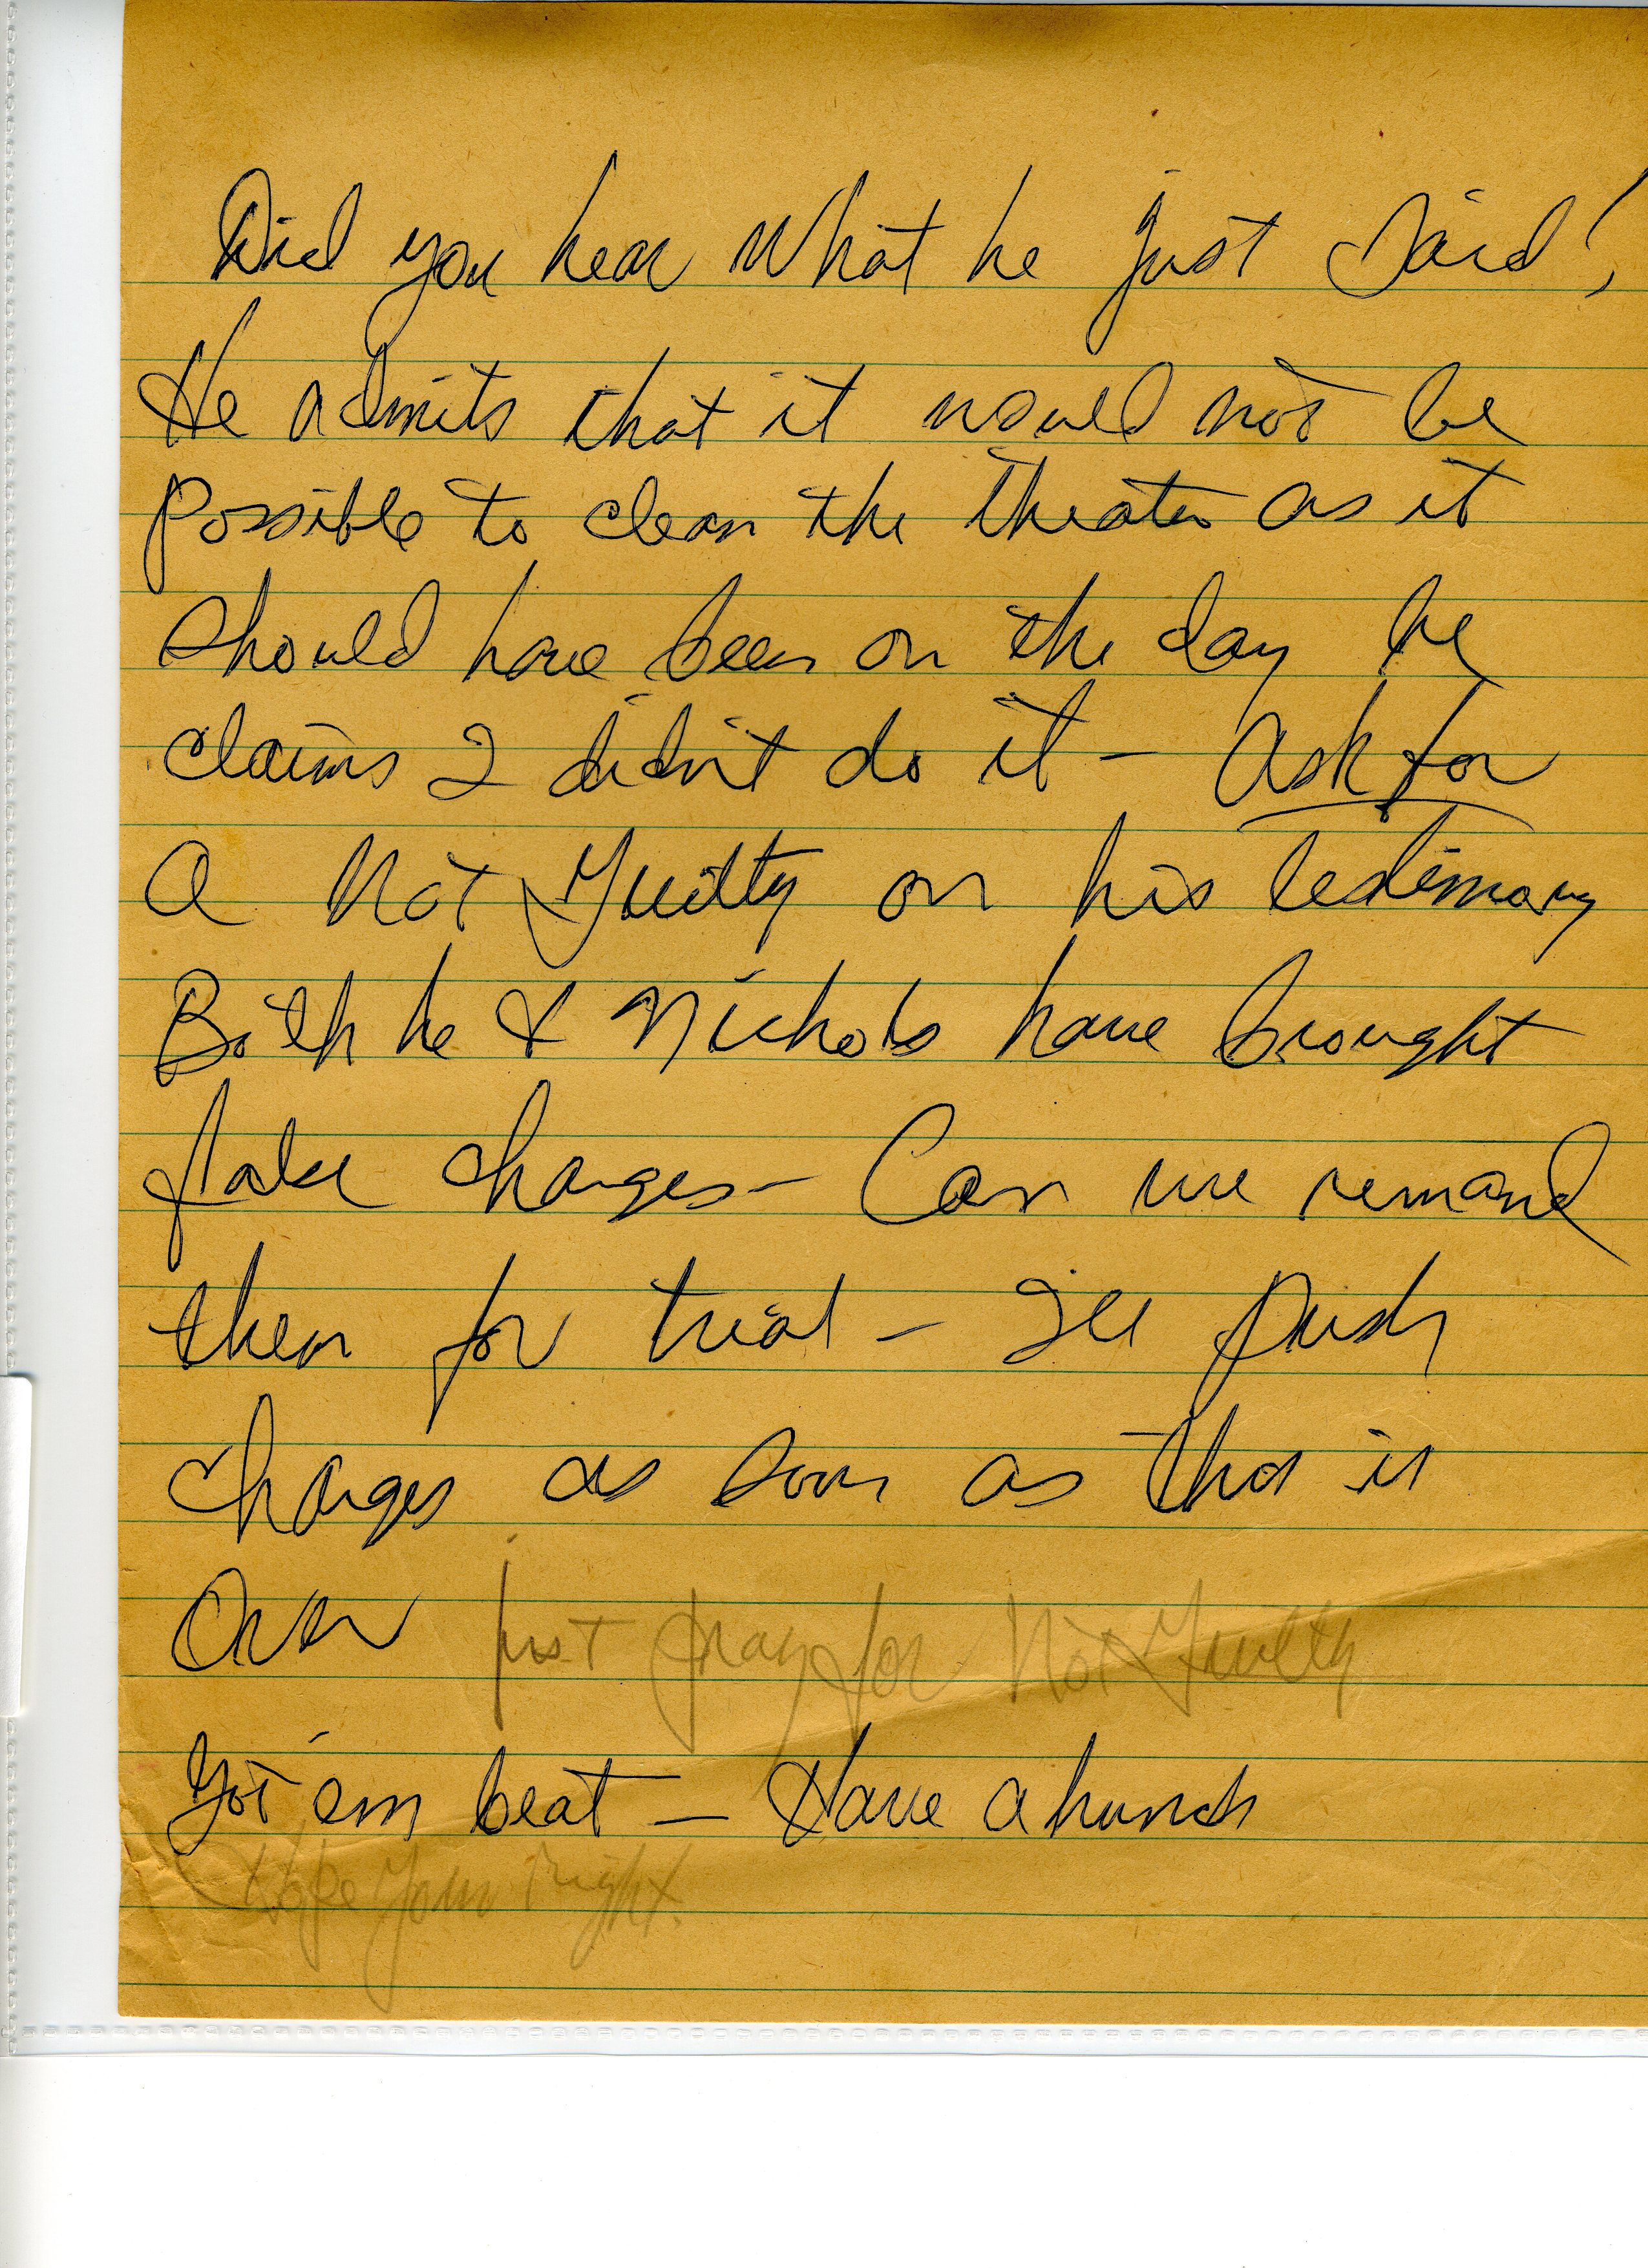 Did you hear what he just said!
He admits that it would not be
possible to clean the theater as it
should have been on the day he
claims I didn't do it - Ask for
a Not Guilty on his testimony
Both he & Nichols have brought
false charges - Can we remand
them for trial - I'll push
charges as soon as this is
over just pray for Not Guilty
Got 'em beat - Have a hunch
Hope your right.